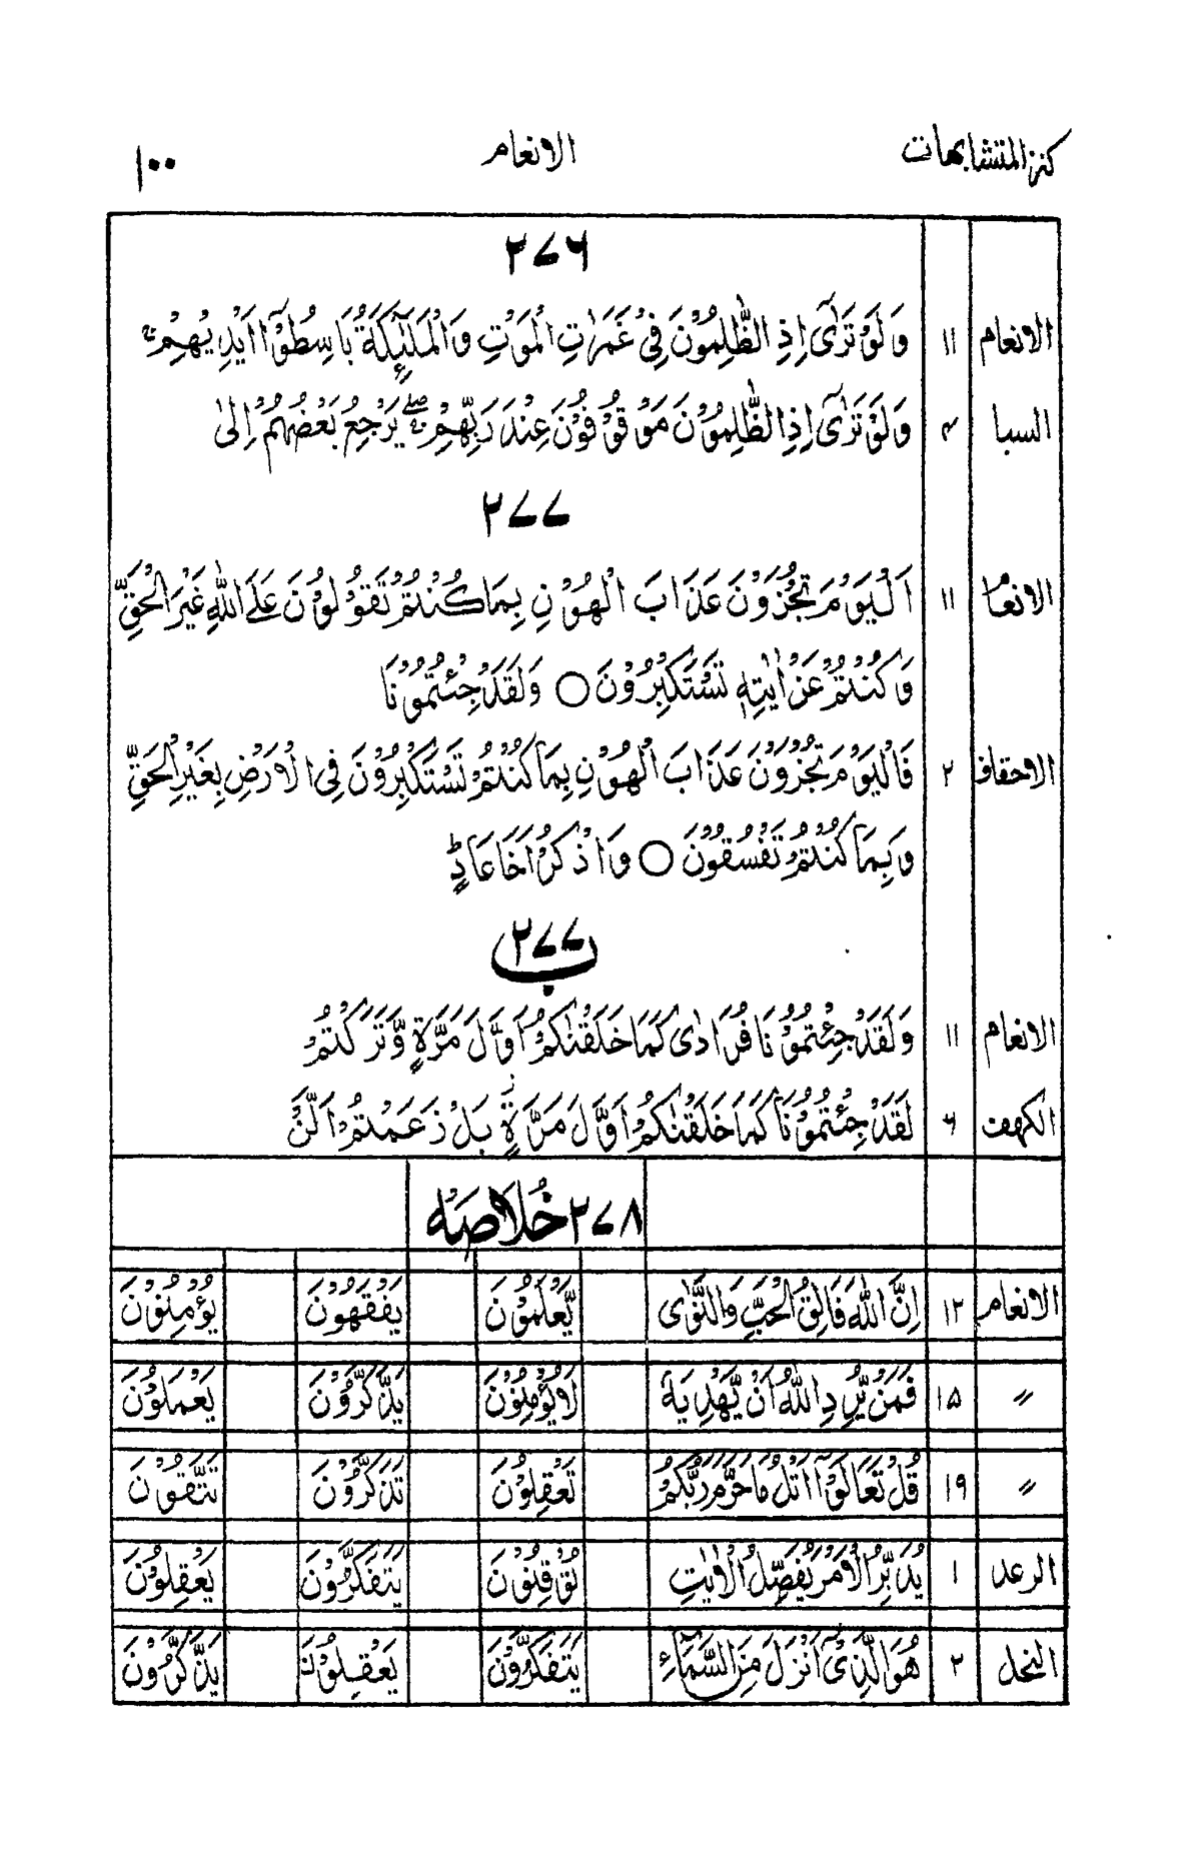 كنز المتشابهات الانعام ١٠٠
٢٧٦
الانعام ١١ وَلَوْ تَرٰٓى اِذِ الظّٰلِمُوْنَ فِيْ غَمَرٰتِ الْمَوْتِ وَالْمَلٰٓئِكَةُ بَاسِطُوْٓا اَيْدِيْهِمْ
السبا ٤ وَلَوْ تَرٰٓى اِذِ الظّٰلِمُوْنَ مَوْقُوْفُوْنَ عِنْدَ رَبِّهِمْ ۖ يَرْجِعُ بَعْضُهُمْ اِلٰى
٢٧٧
الانعام ١١ اَلْيَوْمَ تُجْزَوْنَ عَذَابَ الْهُوْنِ بِمَا كُنْتُمْ تَقُوْلُوْنَ عَلَى اللّٰهِ غَيْرَ الْحَقِّ
وَكُنْتُمْ عَنْ اٰيٰتِهٖ تَسْتَكْبِرُوْنَ ○ وَلَقَدْ جِئْتُمُوْنَا
الاحقاف ٢ فَالْيَوْمَ تُجْزَوْنَ عَذَابَ الْهُوْنِ بِمَا كُنْتُمْ تَسْتَكْبِرُوْنَ فِي الْاَرْضِ بِغَيْرِ الْحَقِّ
وَبِمَا كُنْتُمْ تَفْسُقُوْنَ ○ وَاذْكُرْ اَخَا عَادٍ ؕ
٢٧٧ ب
الانعام ١١ وَلَقَدْ جِئْتُمُوْنَا فُرَادٰى كَمَا خَلَقْنٰكُمْ اَوَّلَ مَرَّةٍ وَّتَرَكْتُمْ
الكهف ٦ لَقَدْ جِئْتُمُوْنَا كَمَا خَلَقْنٰكُمْ اَوَّلَ مَرَّةٍ بَلْ زَعَمْتُمْ اَلَّنْ
٢٧٨ خُلَاصَه
الانعام ١٢ اِنَّ اللّٰهَ فَالِقُ الْحَبِّ وَالنَّوٰى يَّعْلَمُوْنَ يَفْقَهُوْنَ يُؤْمِنُوْنَ
〃 ١٥ فَمَنْ يُّرِدِ اللّٰهُ اَنْ يَّهْدِيَهٗ لَا يُؤْمِنُوْنَ يَذَّكَّرُوْنَ يَعْمَلُوْنَ
〃 ١٩ قُلْ تَعَالَوْا اَتْلُ مَا حَرَّمَ رَبُّكُمْ تَعْقِلُوْنَ تَذَكَّرُوْنَ تَتَّقُوْنَ
الرعد ١ يُدَبِّرُ الْاَمْرَ يُفَصِّلُ الْاٰيٰتِ تُوْقِنُوْنَ يَتَفَكَّرُوْنَ يَعْقِلُوْنَ
النحل ٢ هُوَ الَّذِيْٓ اَنْزَلَ مِنَ السَّمَآءِ يَتَفَكَّرُوْنَ يَعْقِلُوْنَ يَذَّكَّرُوْنَ